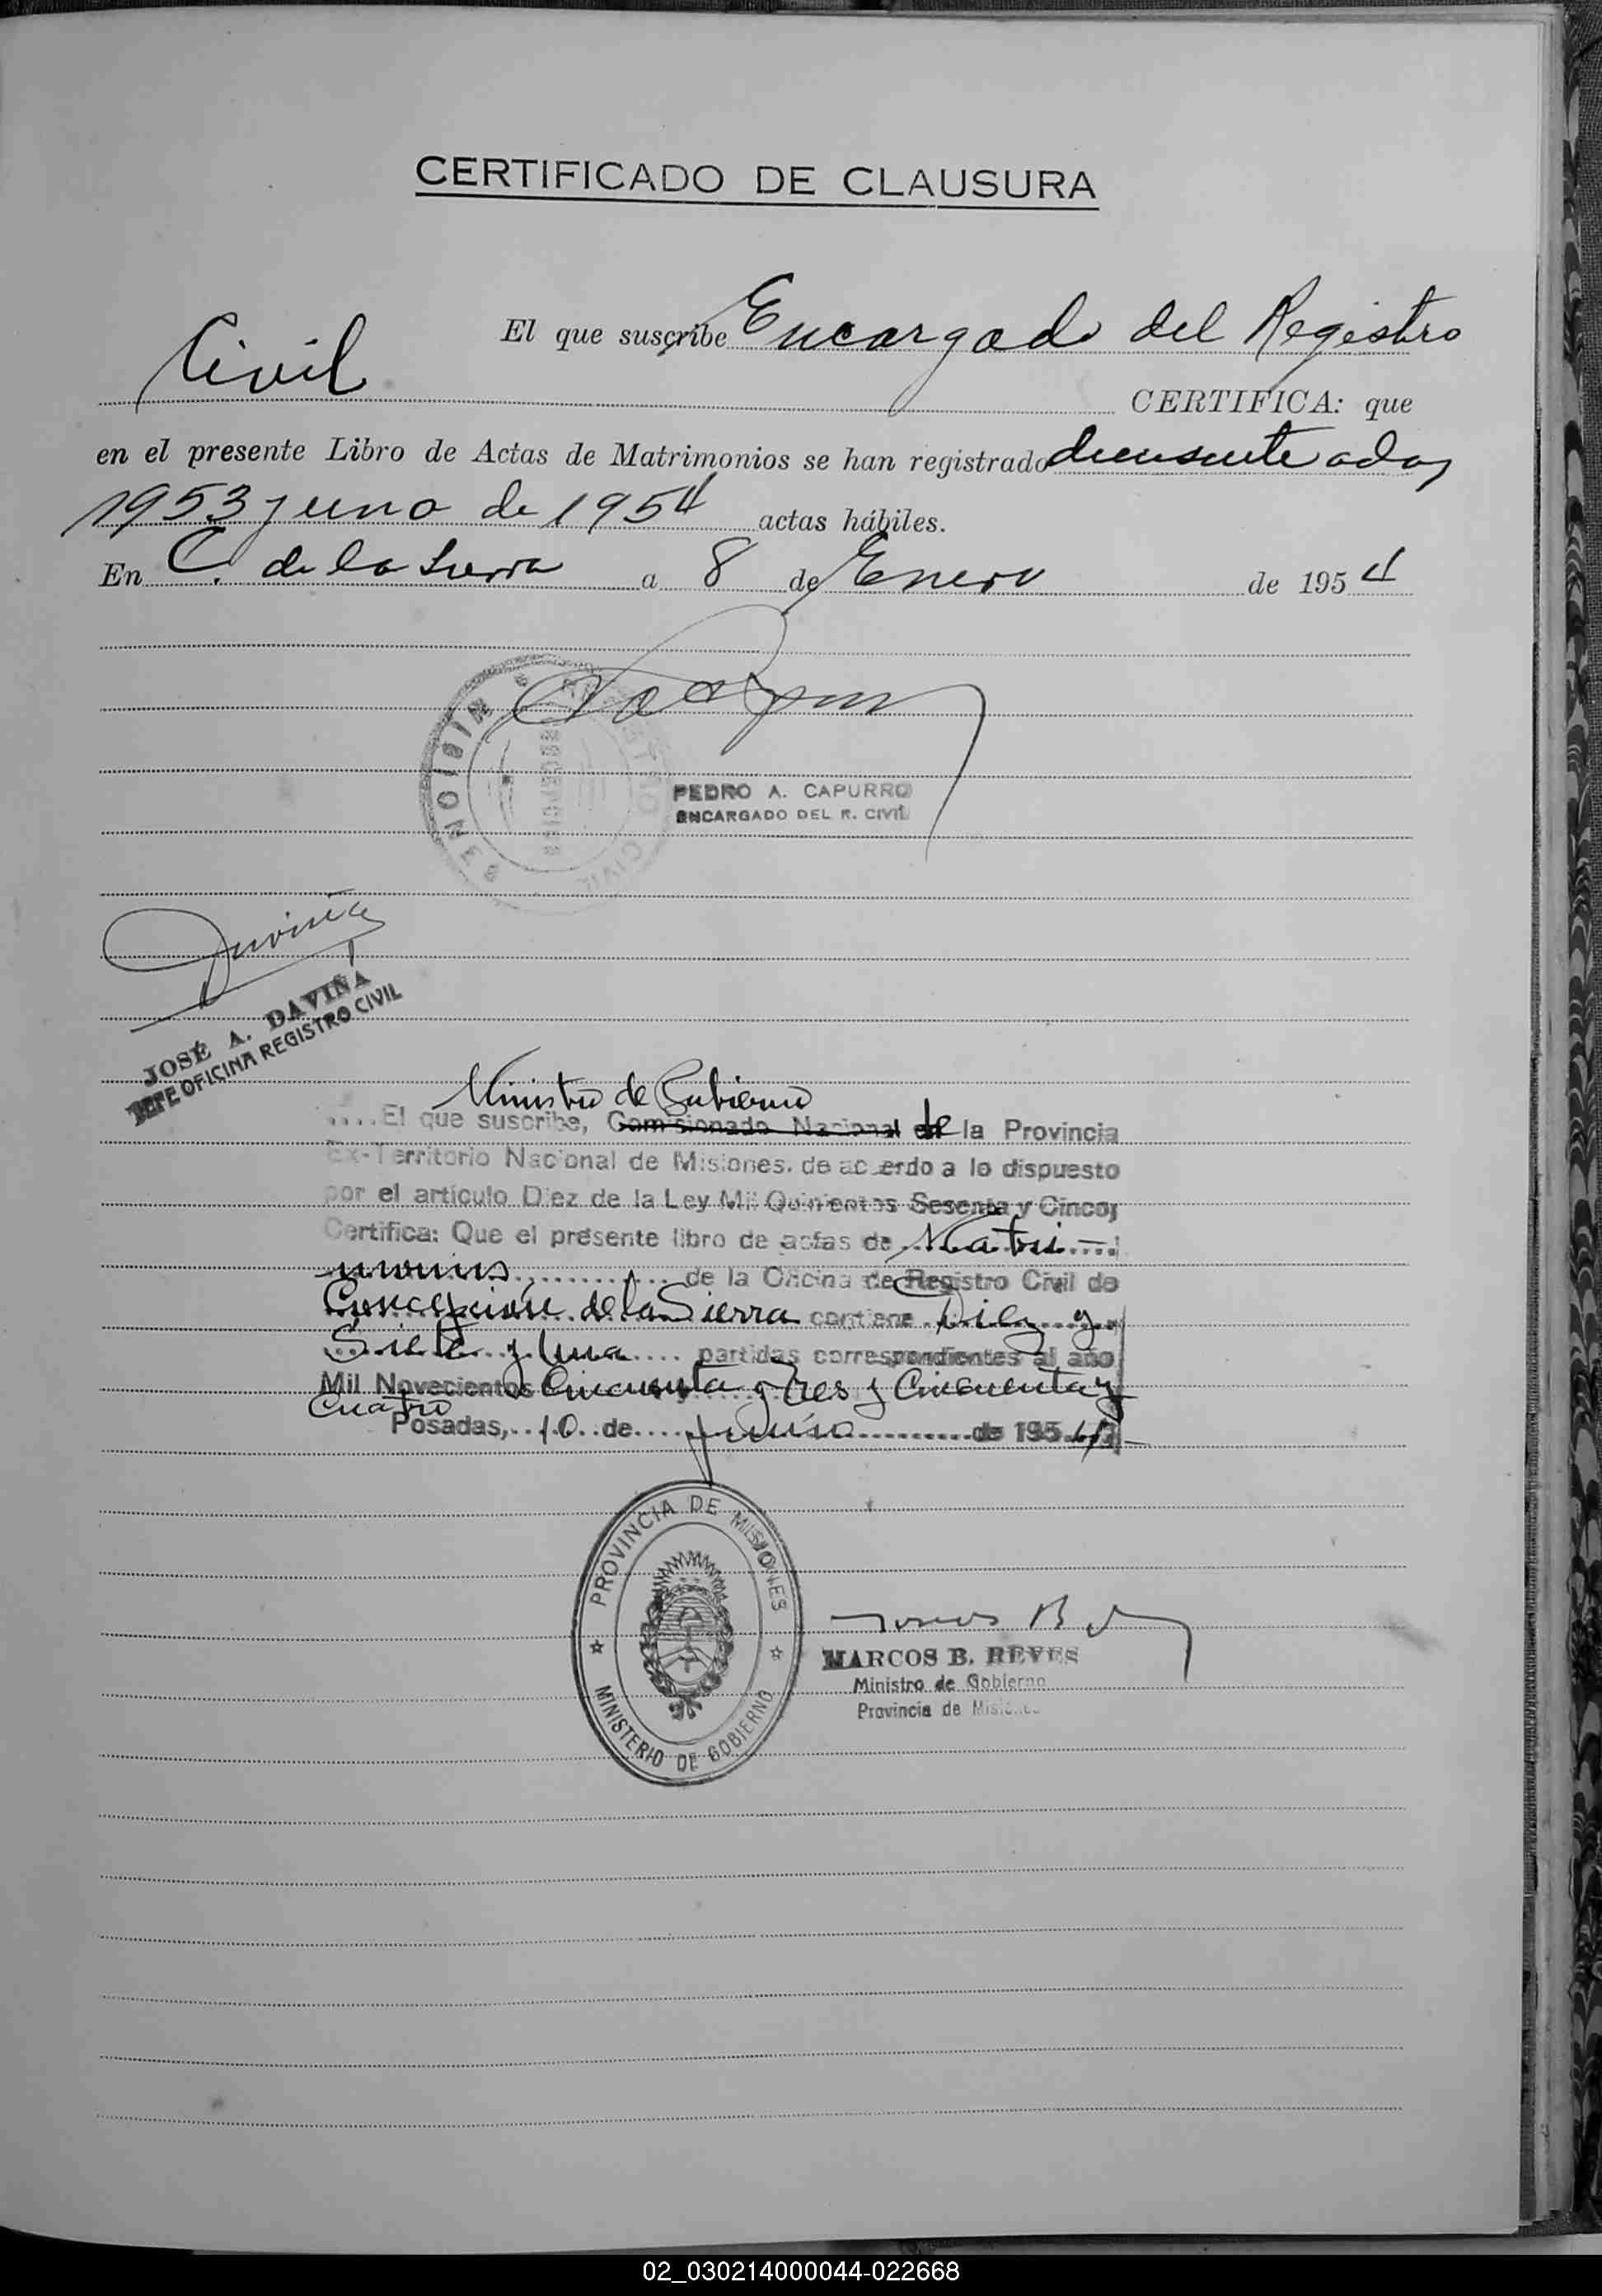 CERTIFICADO DE CLAUSURA
El que suscribe Encargado del Registro
Civil CERTIFICA: que
en el presente Libro de Actas de Matrimonios se han registrado
1953 y uno de 1954 actas hábiles.
En C. de la Sierra a 8 de Enero de 1954
MISIONES
REGISTRO CIVIL
PEDRO A. CAPURRO
ENCARGADO DEL R. CIVIL
Daviña
JOSÉ A. DAVIÑA
JEFE OFICINA REGISTRO CIVIL
Ministro de Gobierno
....El que suscribe, Comisionado Nacional de la Provincia
Ex-Territorio Nacional de Misiones. de acuerdo a lo dispuesto
por el artículo Diez de la Ley Mil Quinientos Sesenta y Cinco;
Certifica: Que el presente libro de actas de Matri-
monios de la Oficina de Registro Civil de
Concepción de la Sierra contiene Diez y
Siete y Una partidas correspondientes al año
Mil Novecientos Cincuenta y Tres y Cincuenta y
Cuatro
Posadas, 10 de Junio de 1954
PROVINCIA DE MISIONES
MINISTERIO DE GOBIERNO
MARCOS B. REYES
Ministro de Gobierno
Provincia de Misiones
02_030214000044-022668